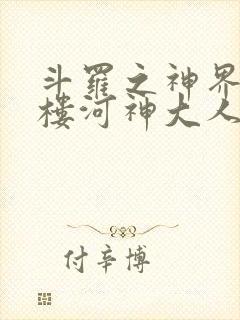 斗罗之神界
楼河神大人
付辛博